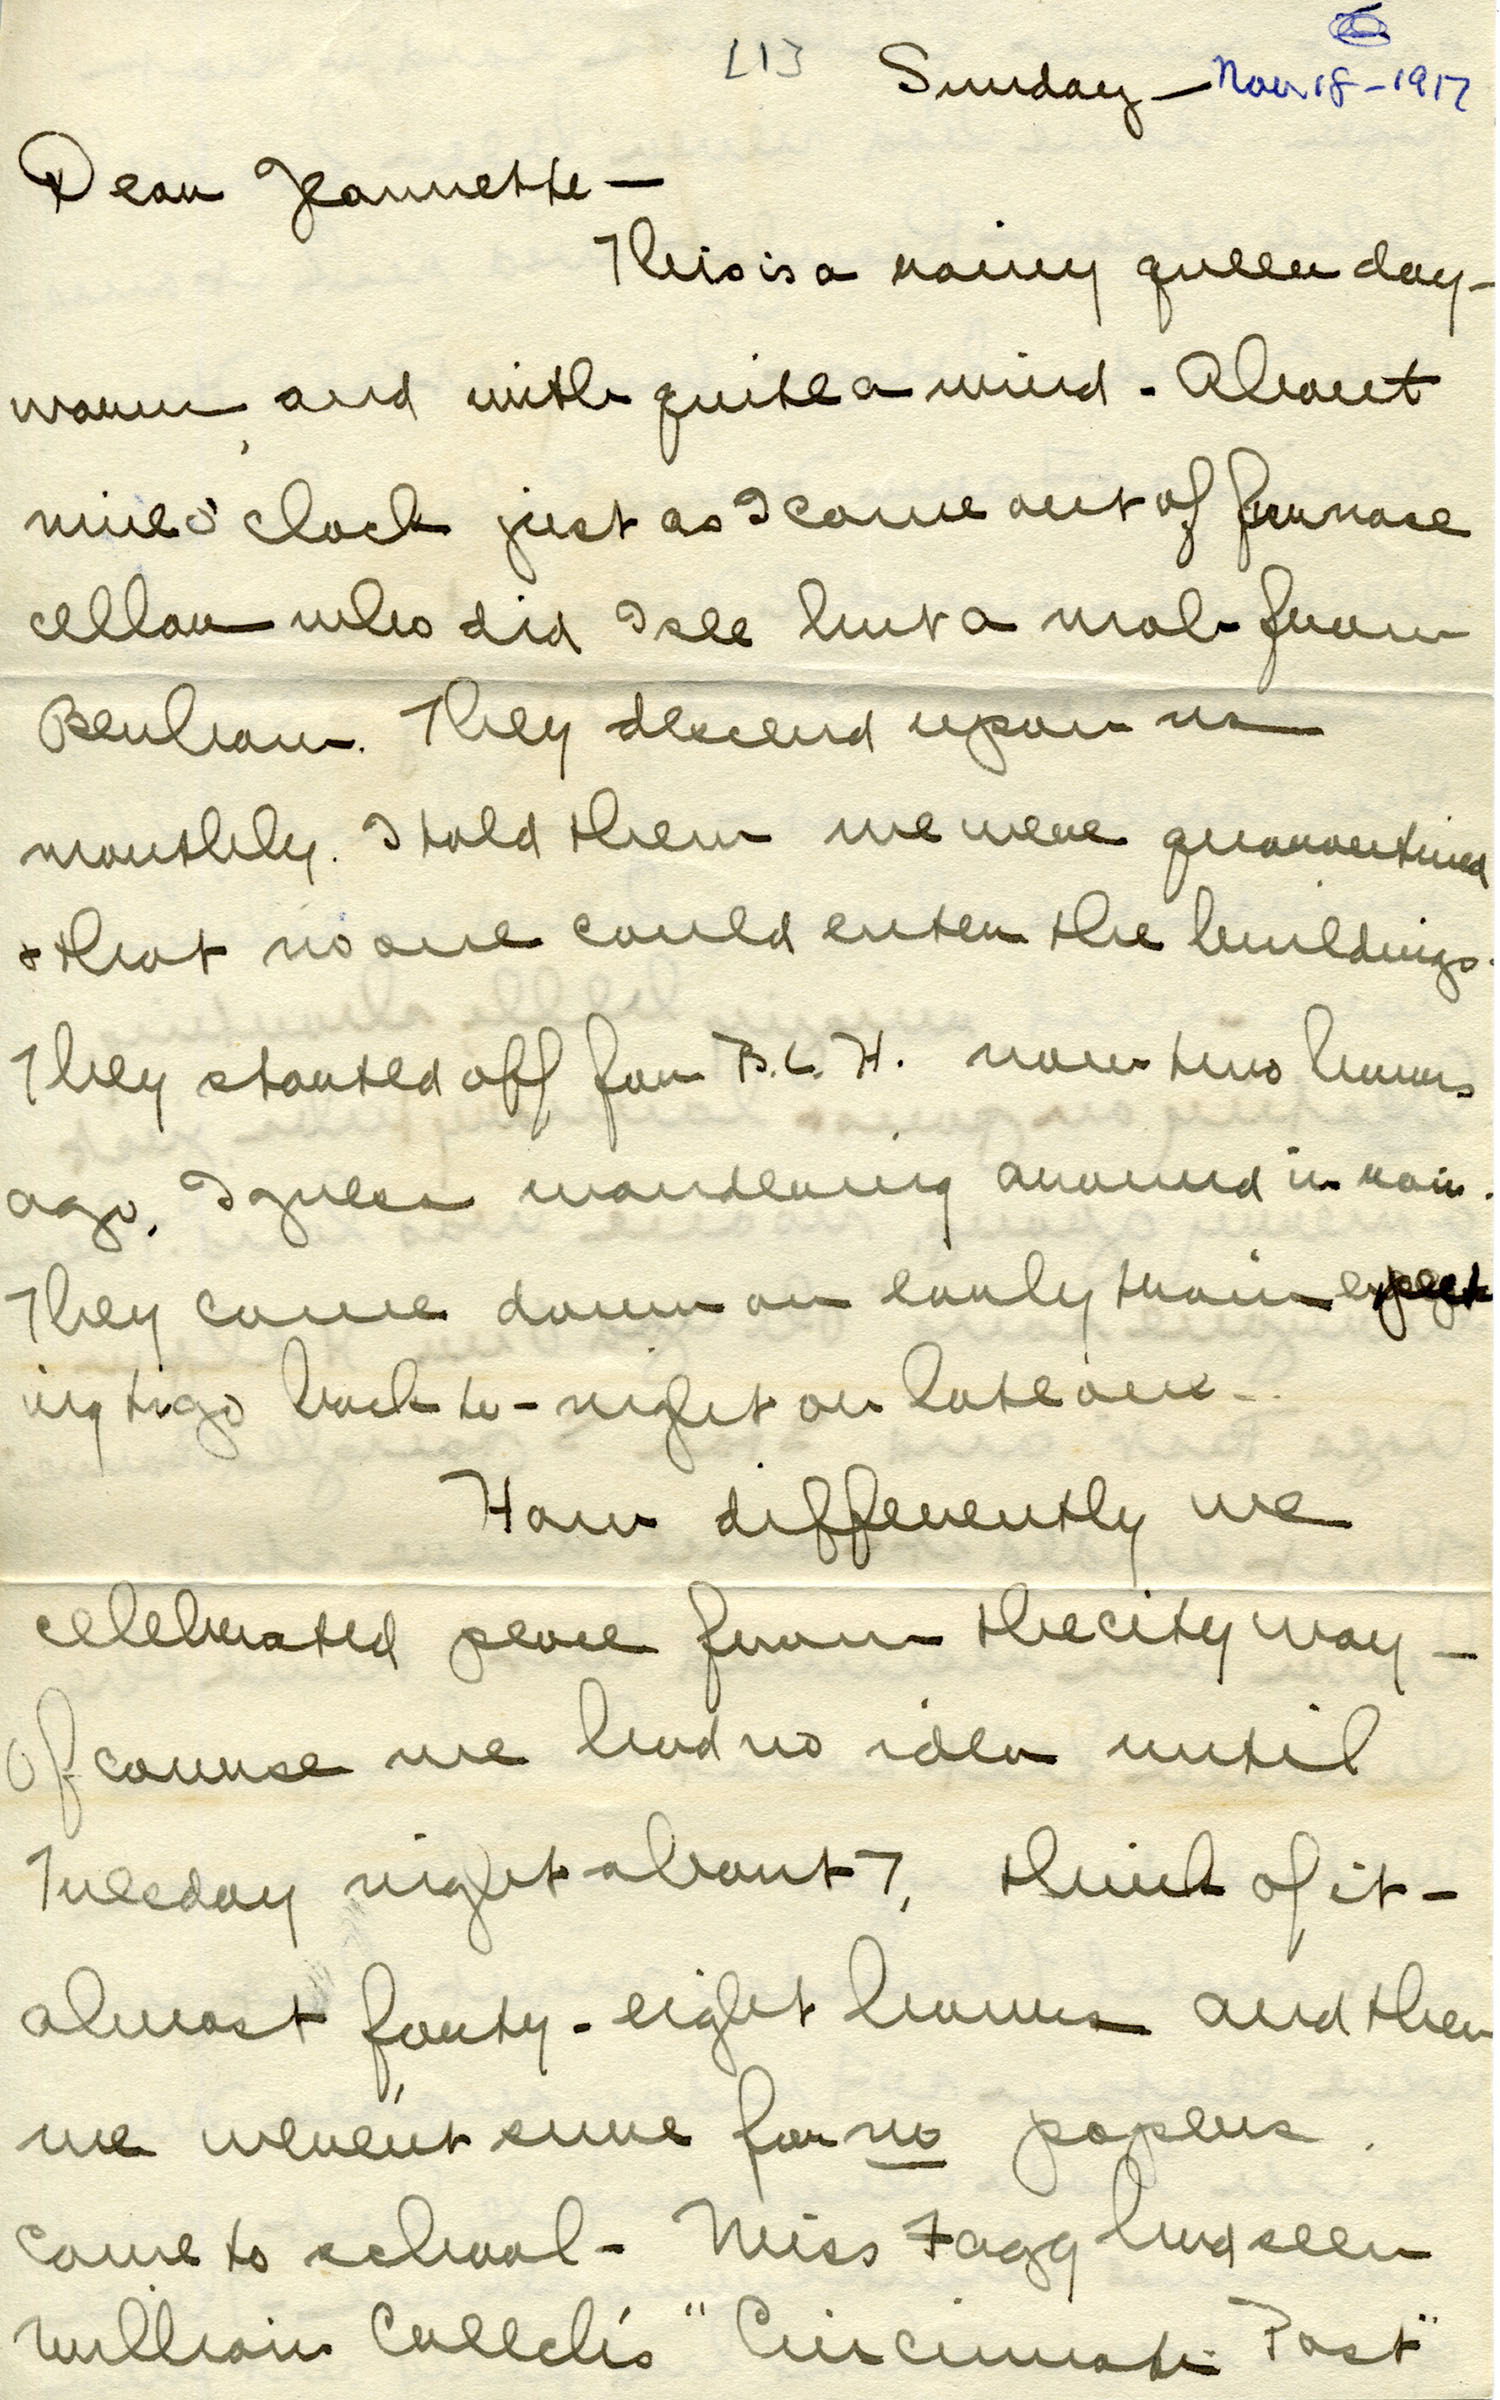 [1] Sunday — Nov 18 - 1917
Dear Jeannette —
This is a rainy queer day -
warm, and with quite a wind - About
nine o'clock just as I came out of furnase
cellar who did I see but a mob from
Benham. They descend upon us
monthly. I told them we were quarantined
& that no one could enter the buildings.
They started off for B.L.H. now two hours
ago, I guess wandering around in rain.
They came down on early train expect
ing to go back to-night on late one -
How differently we
celebrated peace from the city way —
Of course we had no idea until
Tuesday night about 7, think of it -
almost forty-eight hours and then
we weren't sure for no papers
come to school - Miss Fagg had seen
William Creech's "Cincinnati Post"